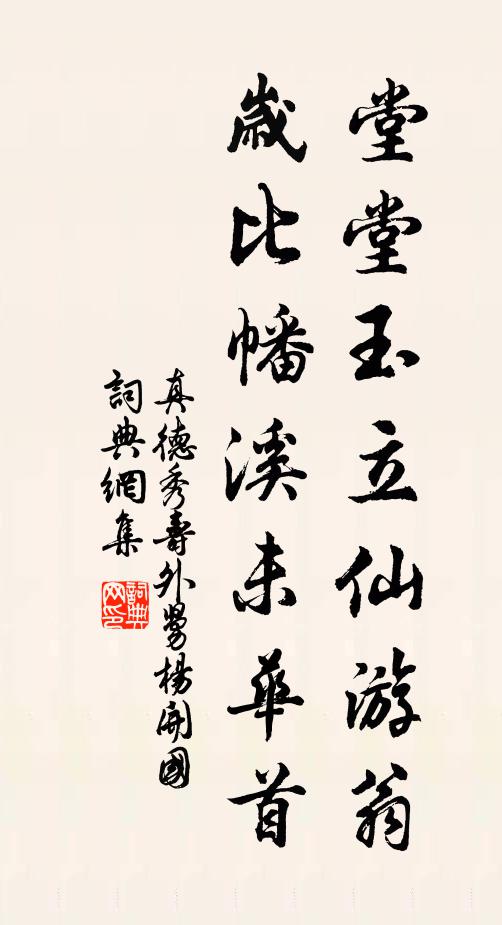 堂堂玉立仙游翁
歲比幡溪未華首
真德秀壽外舅楊開國
詞典網集
詞典网印